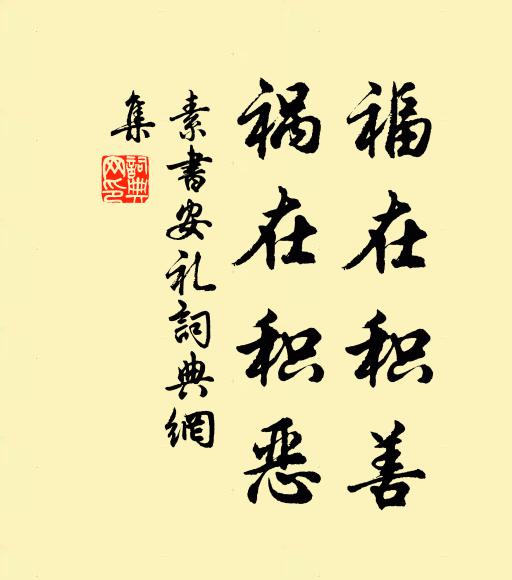 福在积善
祸在积恶
素书安礼詞典網
集
詞典
网印